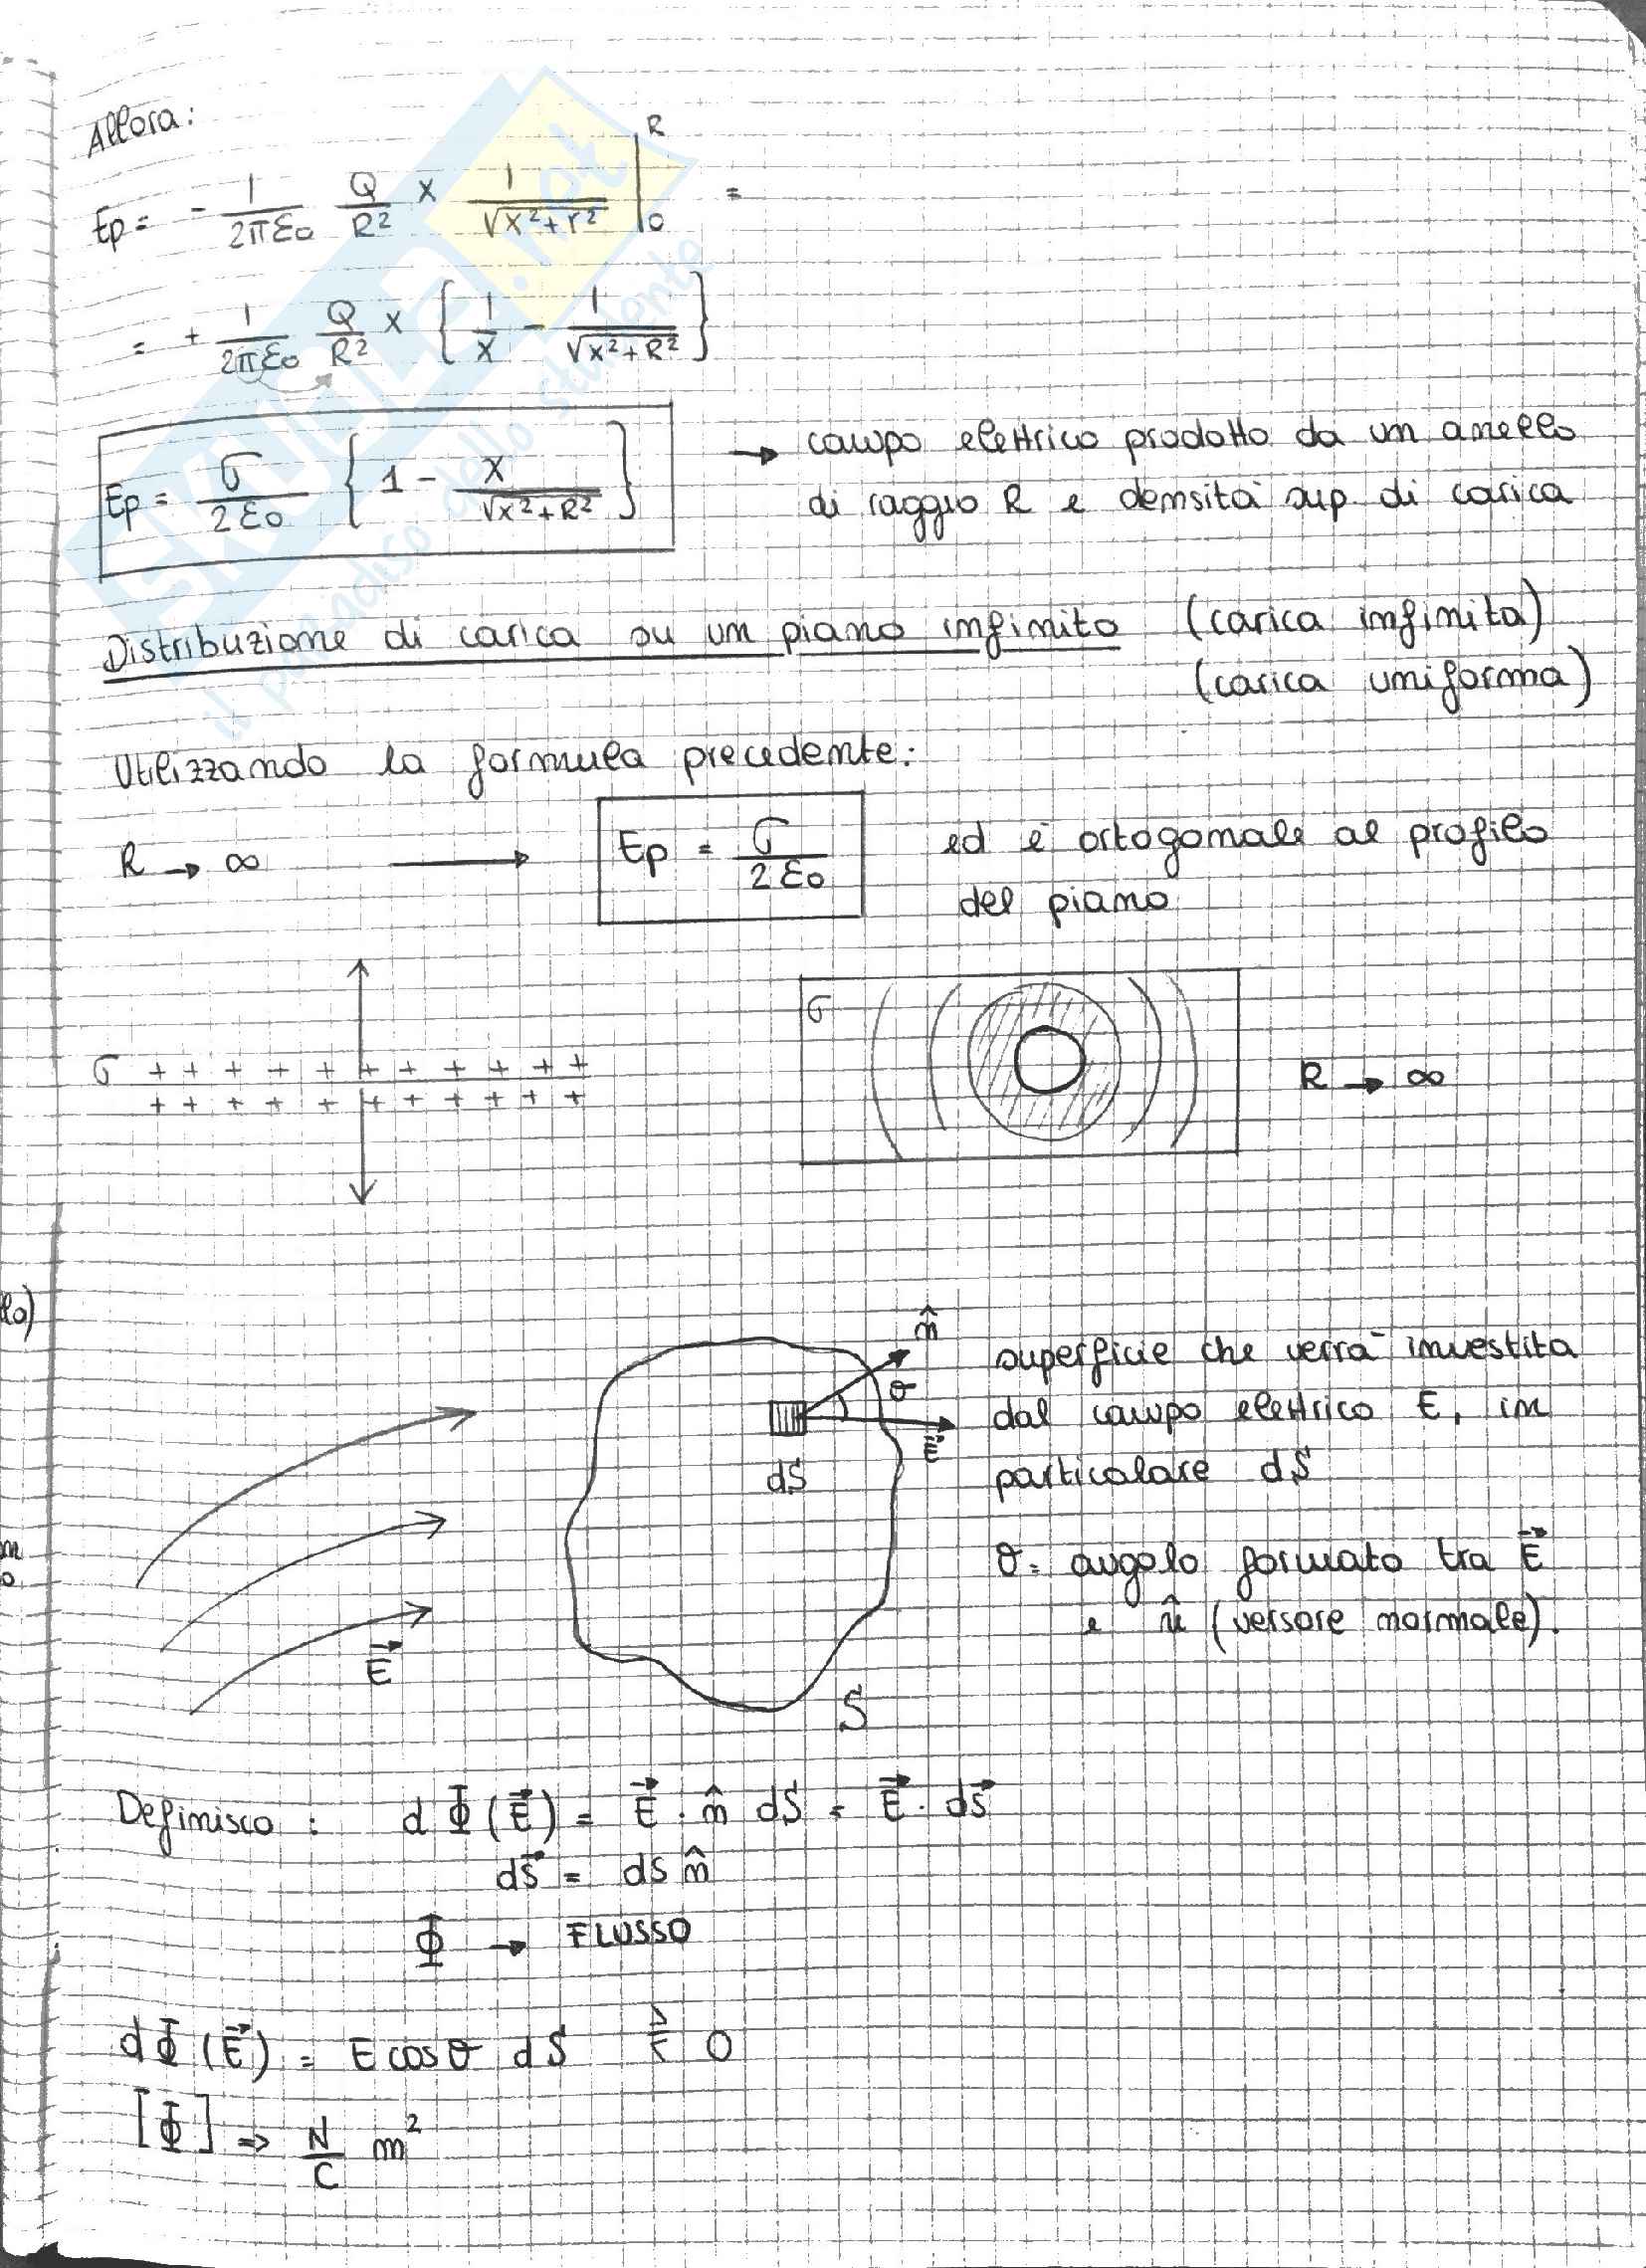 Allora:
Ep = - 1/(2πε0) Q/R² x 1/√(x²+r²) |₀ᴿ =
= + 1/(2πε0) Q/R² x { 1/x - 1/√(x²+R²) }
Ep = σ/(2ε0) { 1 - x/√(x²+R²) } → campo elettrico prodotto da un anello
di raggio R e densità sup di carica
Distribuzione di carica su un piano infinito (carica infinita)
(carica uniforma)
Utilizzando la formula precedente:
R → ∞ → Ep = σ/(2ε0) ed è ortogonale al profilo
del piano
σ + + + + + + + + + + +
+ + + + + + + + + + +
σ
R → ∞
lo)
n̂
superficie che verrà investita
θ
dal campo elettrico E, in
E⃗
dS
particolare dS
θ = angolo formato tra E⃗
e n̂ (versore normale).
E⃗
S
Definisco : d Φ (E⃗) = E⃗ · n̂ dS = E⃗ · ds⃗
ds⃗ = ds n̂
Φ → FLUSSO
dΦ (E⃗) = E cosθ dS ⪌ 0
[Φ] ⇒ N/C m²
SKUOLA.net
il paradiso dello studente